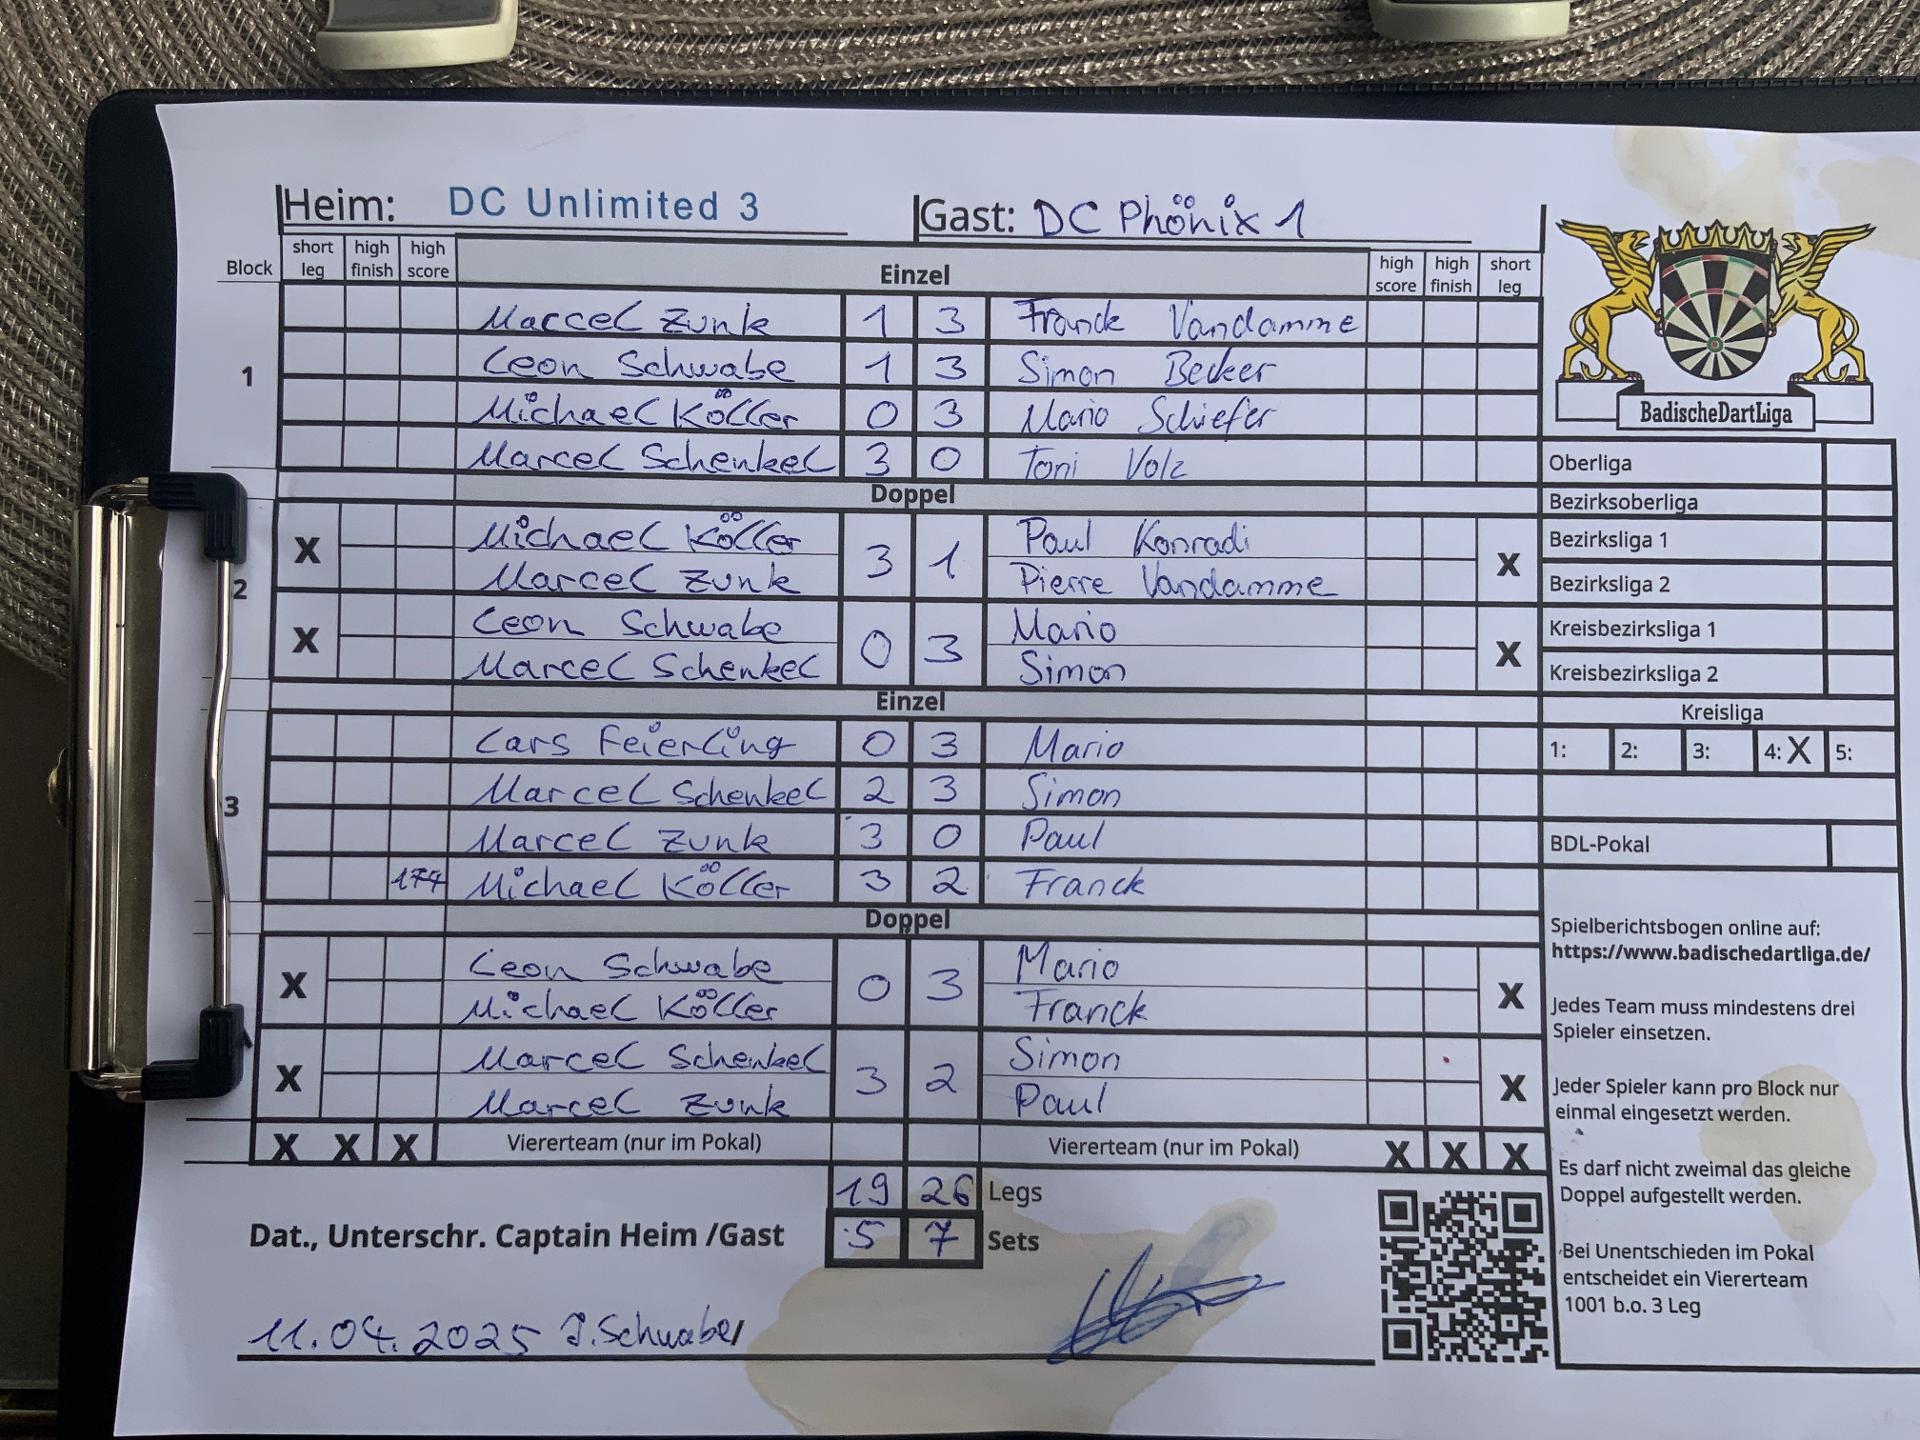 Heim: DC Unlimited 3 Gast: DC Phönix 1
Block short leg high finish high score Einzel high score high finish short leg
1
Marcel Zunk 1 3 Franck Vandamme
Leon Schwabe 1 3 Simon Becker
Michael Köller 0 3 Mario Schiefer
Marcel Schenkel 3 0 Toni Volz
Doppel
2
X Michael Köller 3 1 Paul Konradi X
Marcel Zunk Pierre Vandamme
X Leon Schwabe 0 3 Mario X
Marcel Schenkel Simon
Einzel
3
Lars Feierling 0 3 Mario
Marcel Schenkel 2 3 Simon
Marcel Zunk 3 0 Paul
174 Michael Köller 3 2 Franck
Doppel
X Leon Schwabe 0 3 Mario X
Michael Köller Franck
X Marcel Schenkel 3 2 Simon X
Marcel Zunk Paul
X X X Viererteam (nur im Pokal) Viererteam (nur im Pokal) X X X
19 26 Legs
Dat., Unterschr. Captain Heim /Gast 5 7 Sets
11.04.2025 J.Schwabe
BadischeDartLiga
Oberliga
Bezirksoberliga
Bezirksliga 1
Bezirksliga 2
Kreisbezirksliga 1
Kreisbezirksliga 2
Kreisliga
1: 2: 3: 4: X 5:
BDL-Pokal
Spielberichtsbogen online auf:
https://www.badischedartliga.de/
Jedes Team muss mindestens drei
Spieler einsetzen.
Jeder Spieler kann pro Block nur
einmal eingesetzt werden.
Es darf nicht zweimal das gleiche
Doppel aufgestellt werden.
Bei Unentschieden im Pokal
entscheidet ein Viererteam
1001 b.o. 3 Leg